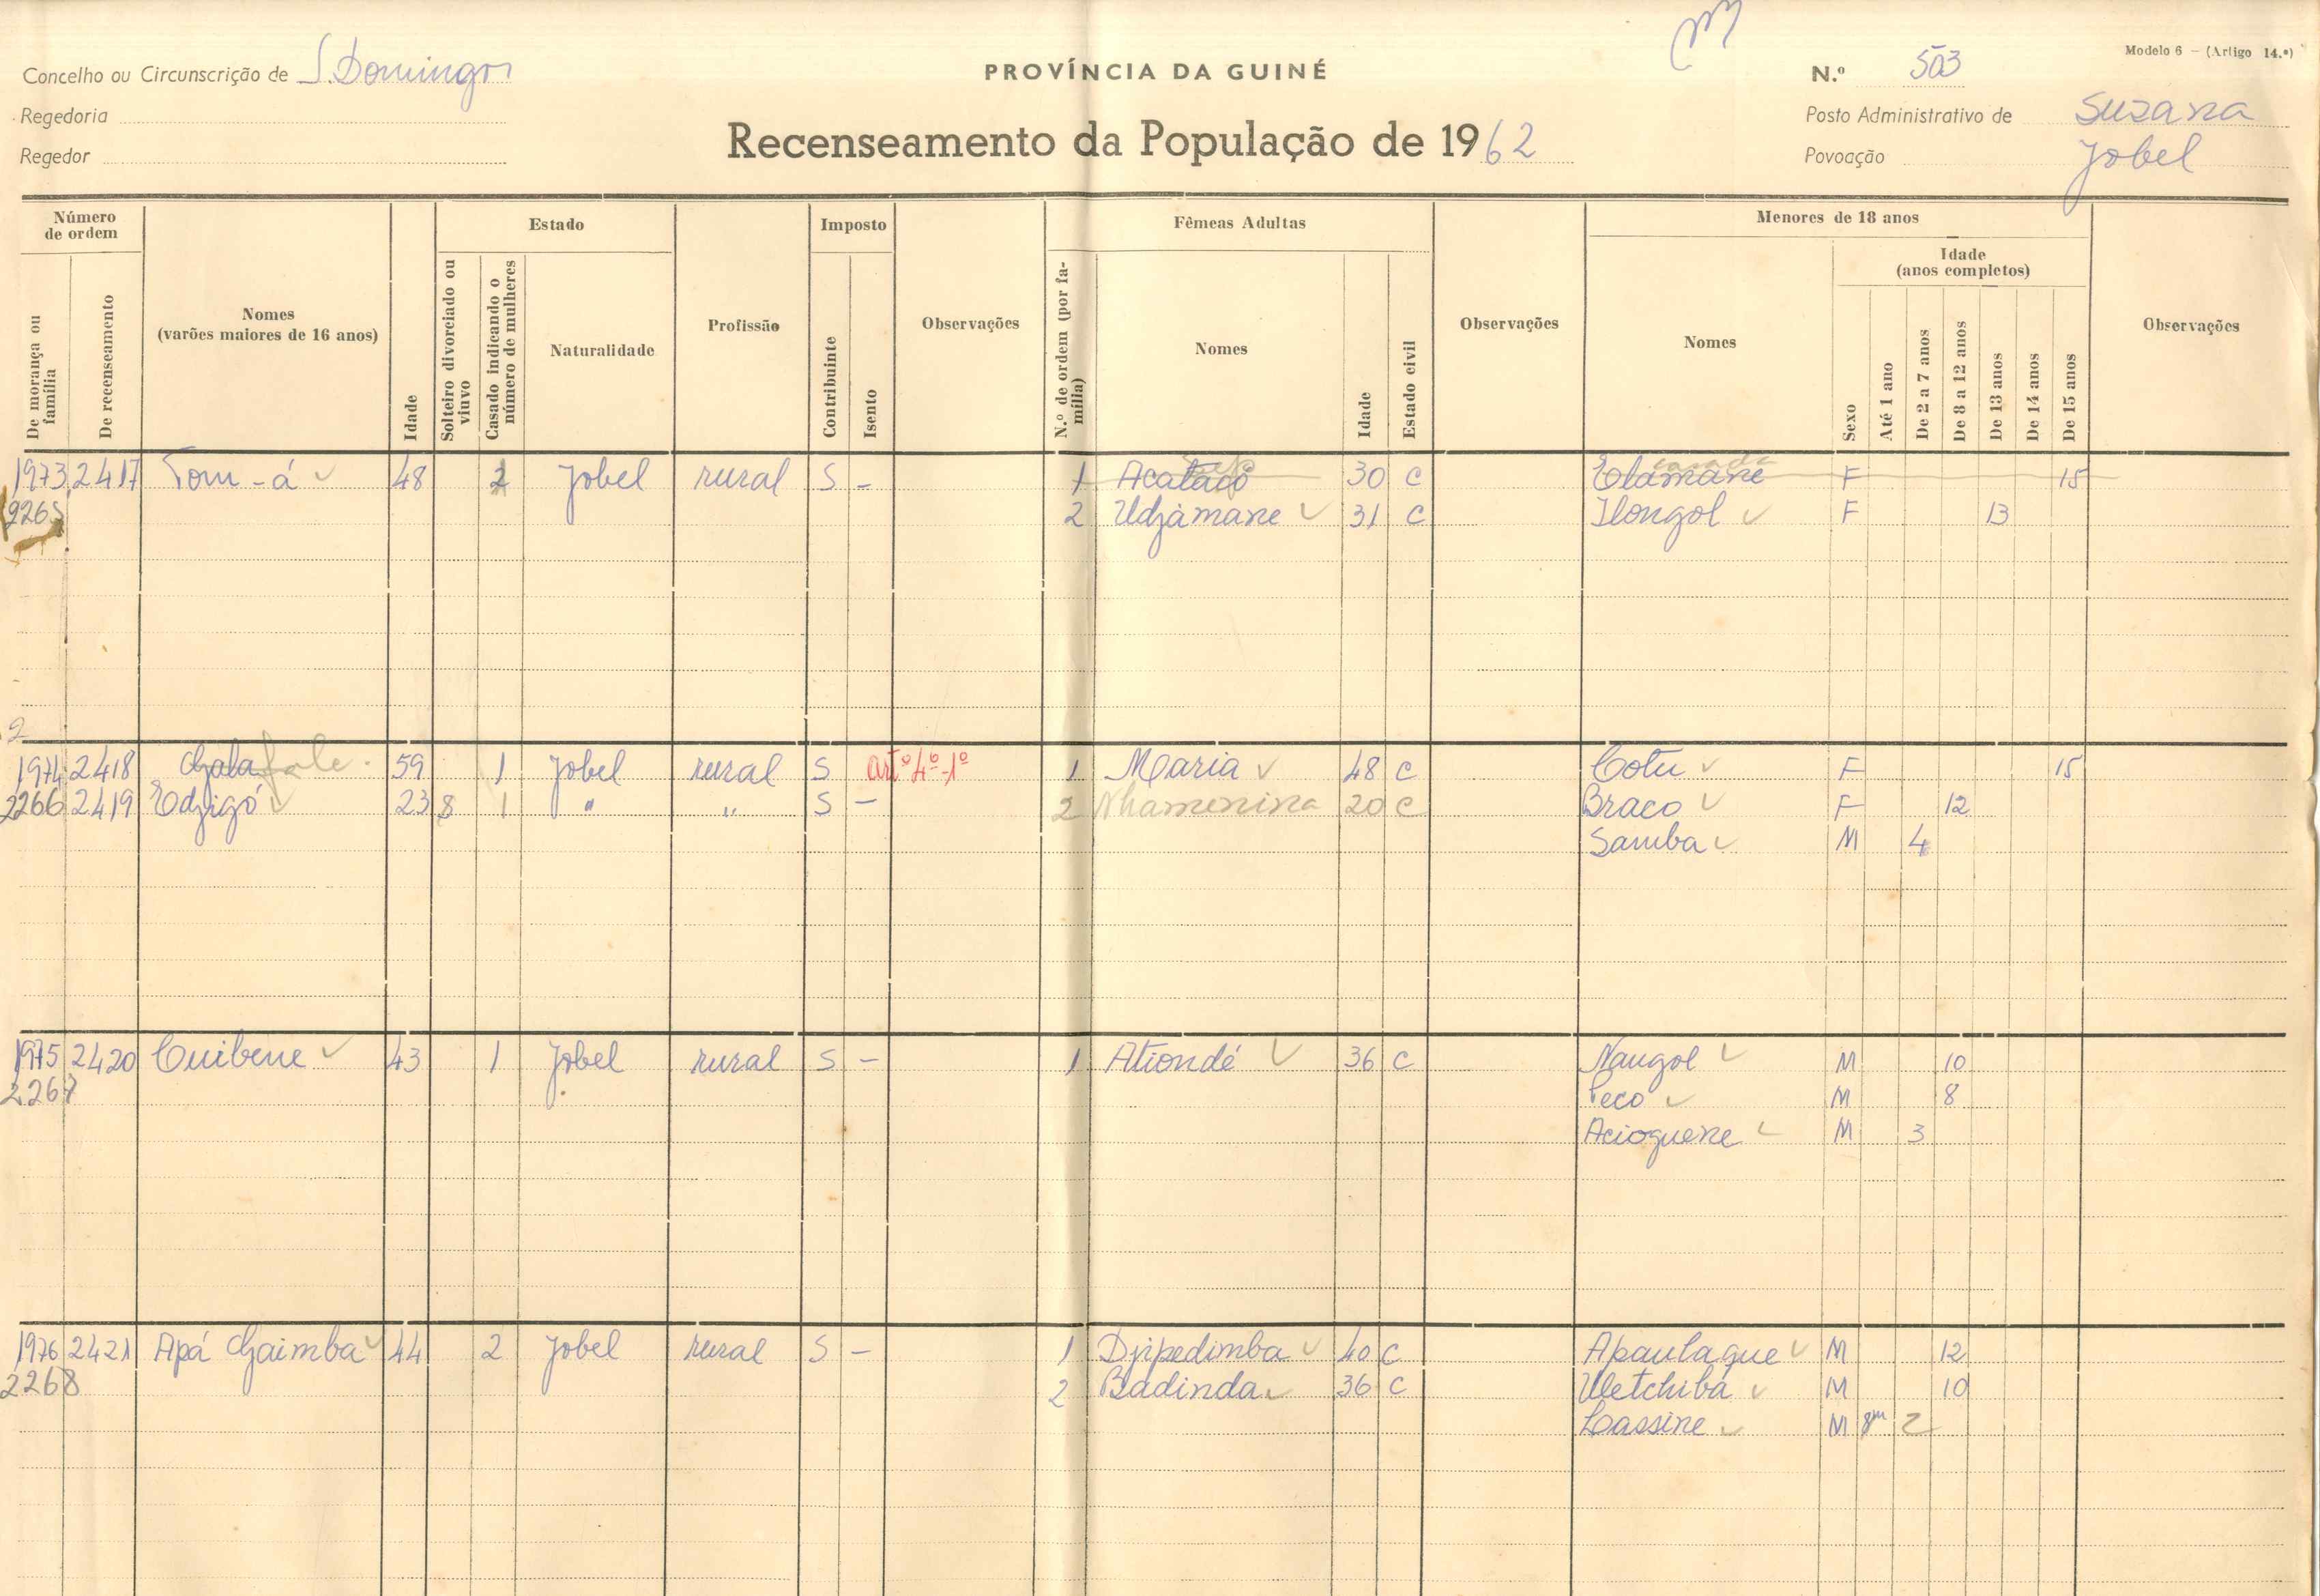 Modelo 6 — (Artigo 14.º)
Concelho ou Circunscrição de S. Domingos
PROVÍNCIA DA GUINÉ
N.º 503
Regedoria
Posto Administrativo de Suzana
Regedor
Recenseamento da População de 1962
Povoação Jobel
Número de ordem
De morança ou família
De recenseamento
Nomes (varões maiores de 16 anos)
Idade
Estado
Solteiro divorciado ou viuvo
Casado indicando o número de mulheres
Naturalidade
Profissão
Imposto
Contribuinte
Isento
Observações
Fêmeas Adultas
N.º de ordem (por família)
Nomes
Idade
Estado civil
Observações
Menores de 18 anos
Nomes
Sexo
Idade (anos completos)
Até 1 ano
De 2 a 7 anos
De 8 a 12 anos
De 13 anos
De 14 anos
De 15 anos
Observações
1973 2417 Tom-á 48 2 Jobel rural S - 1 Acatacó 30 C Elamane F 15
2265 2 Udjamane 31 C Ilongol F 13
1974 2418 59 1 Jobel rural S artº 4º-1º 1 Maria 48 C Cotu F 15
2266 2419 Edjigó 23 8 1 " " S - 2 Nhamenina 20 C Braco F 12
Samba M 4
1975 2420 Cuibene 43 1 Jobel rural S - 1 Ationdé 36 C Naugol M 10
2267 Peco M 8
Acioguene M 3
1976 2421 Apá 44 2 Jobel rural S - 1 Djipedimba 40 C Apaulaque M 12
2268 2 Badinda 36 C Uletchiba M 10
Lassine M 8m 2